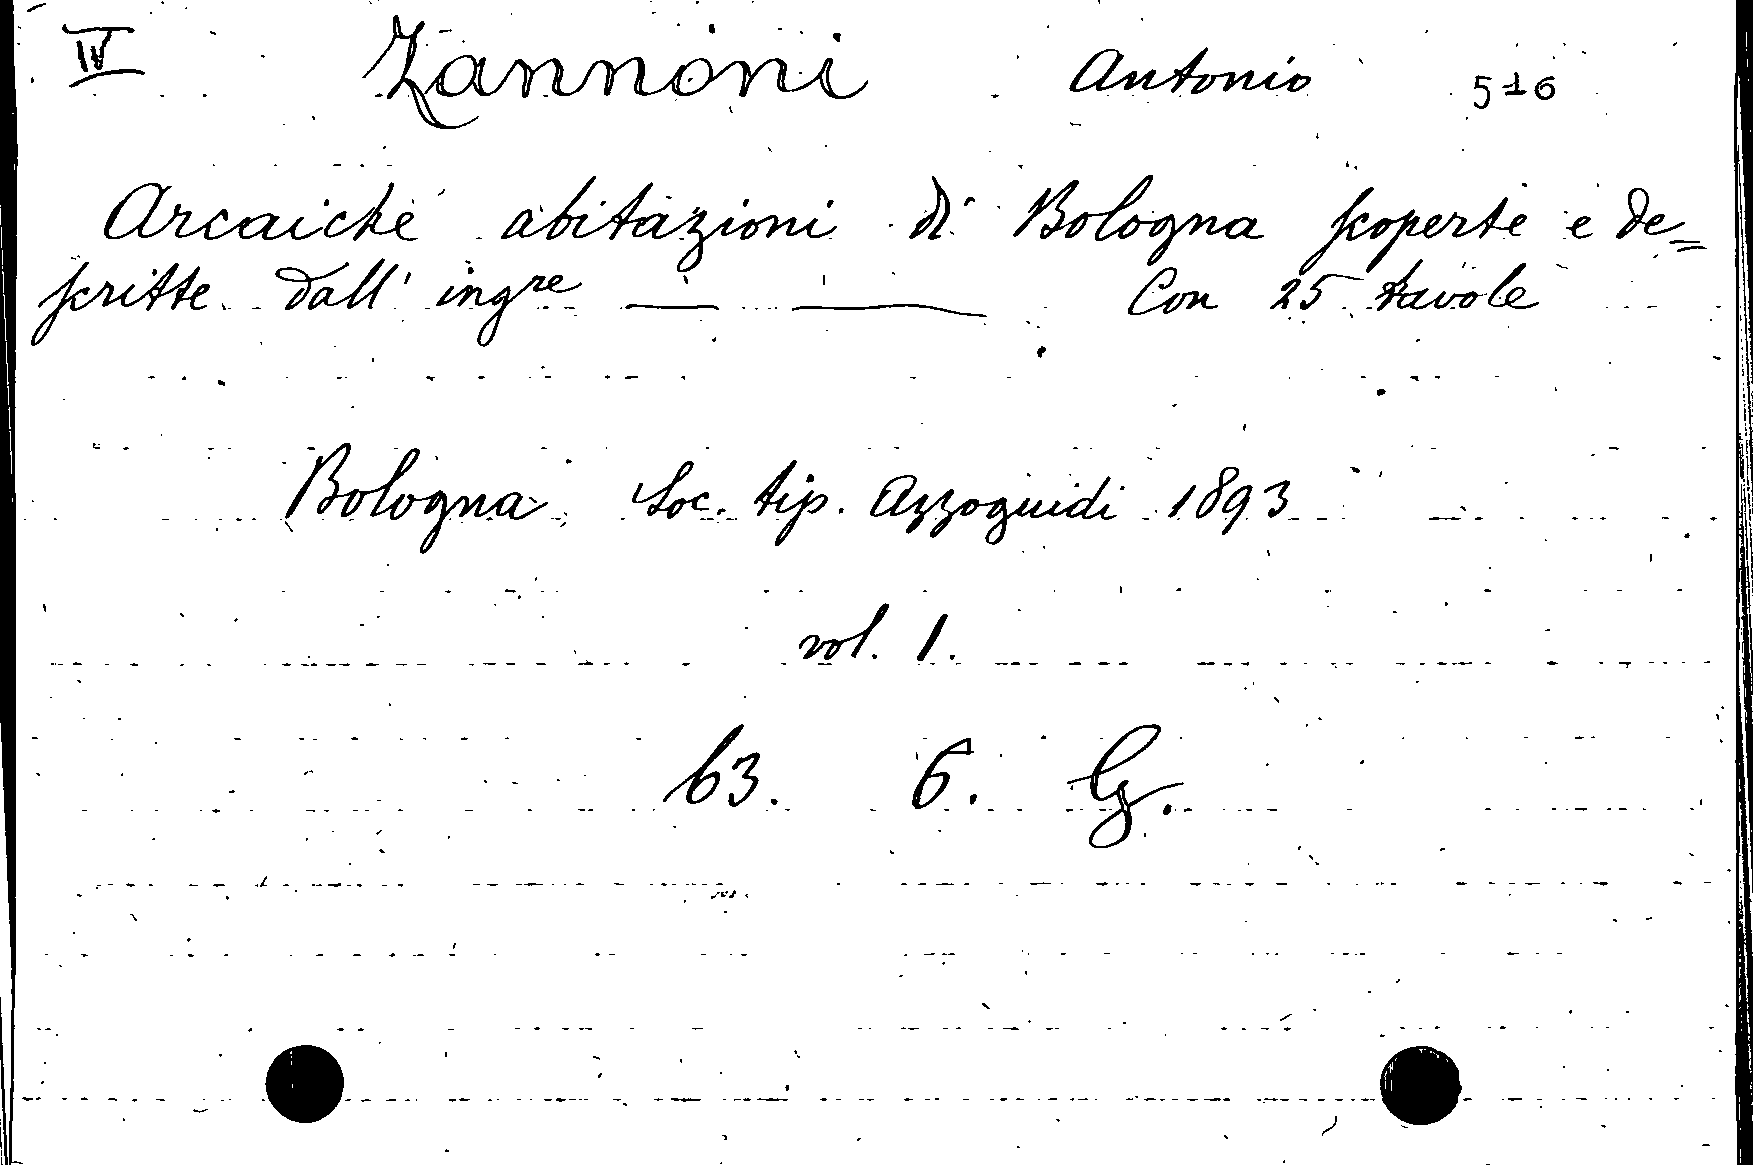 IV Zannoni Antonio 516
Arcaiche abitazioni di Bologna scoperte e de=
scritte dall' ingre — — Con 25 tavole
Bologna Soc. tip. Azzoguidi 1893
vol. 1.
63. 6. G.